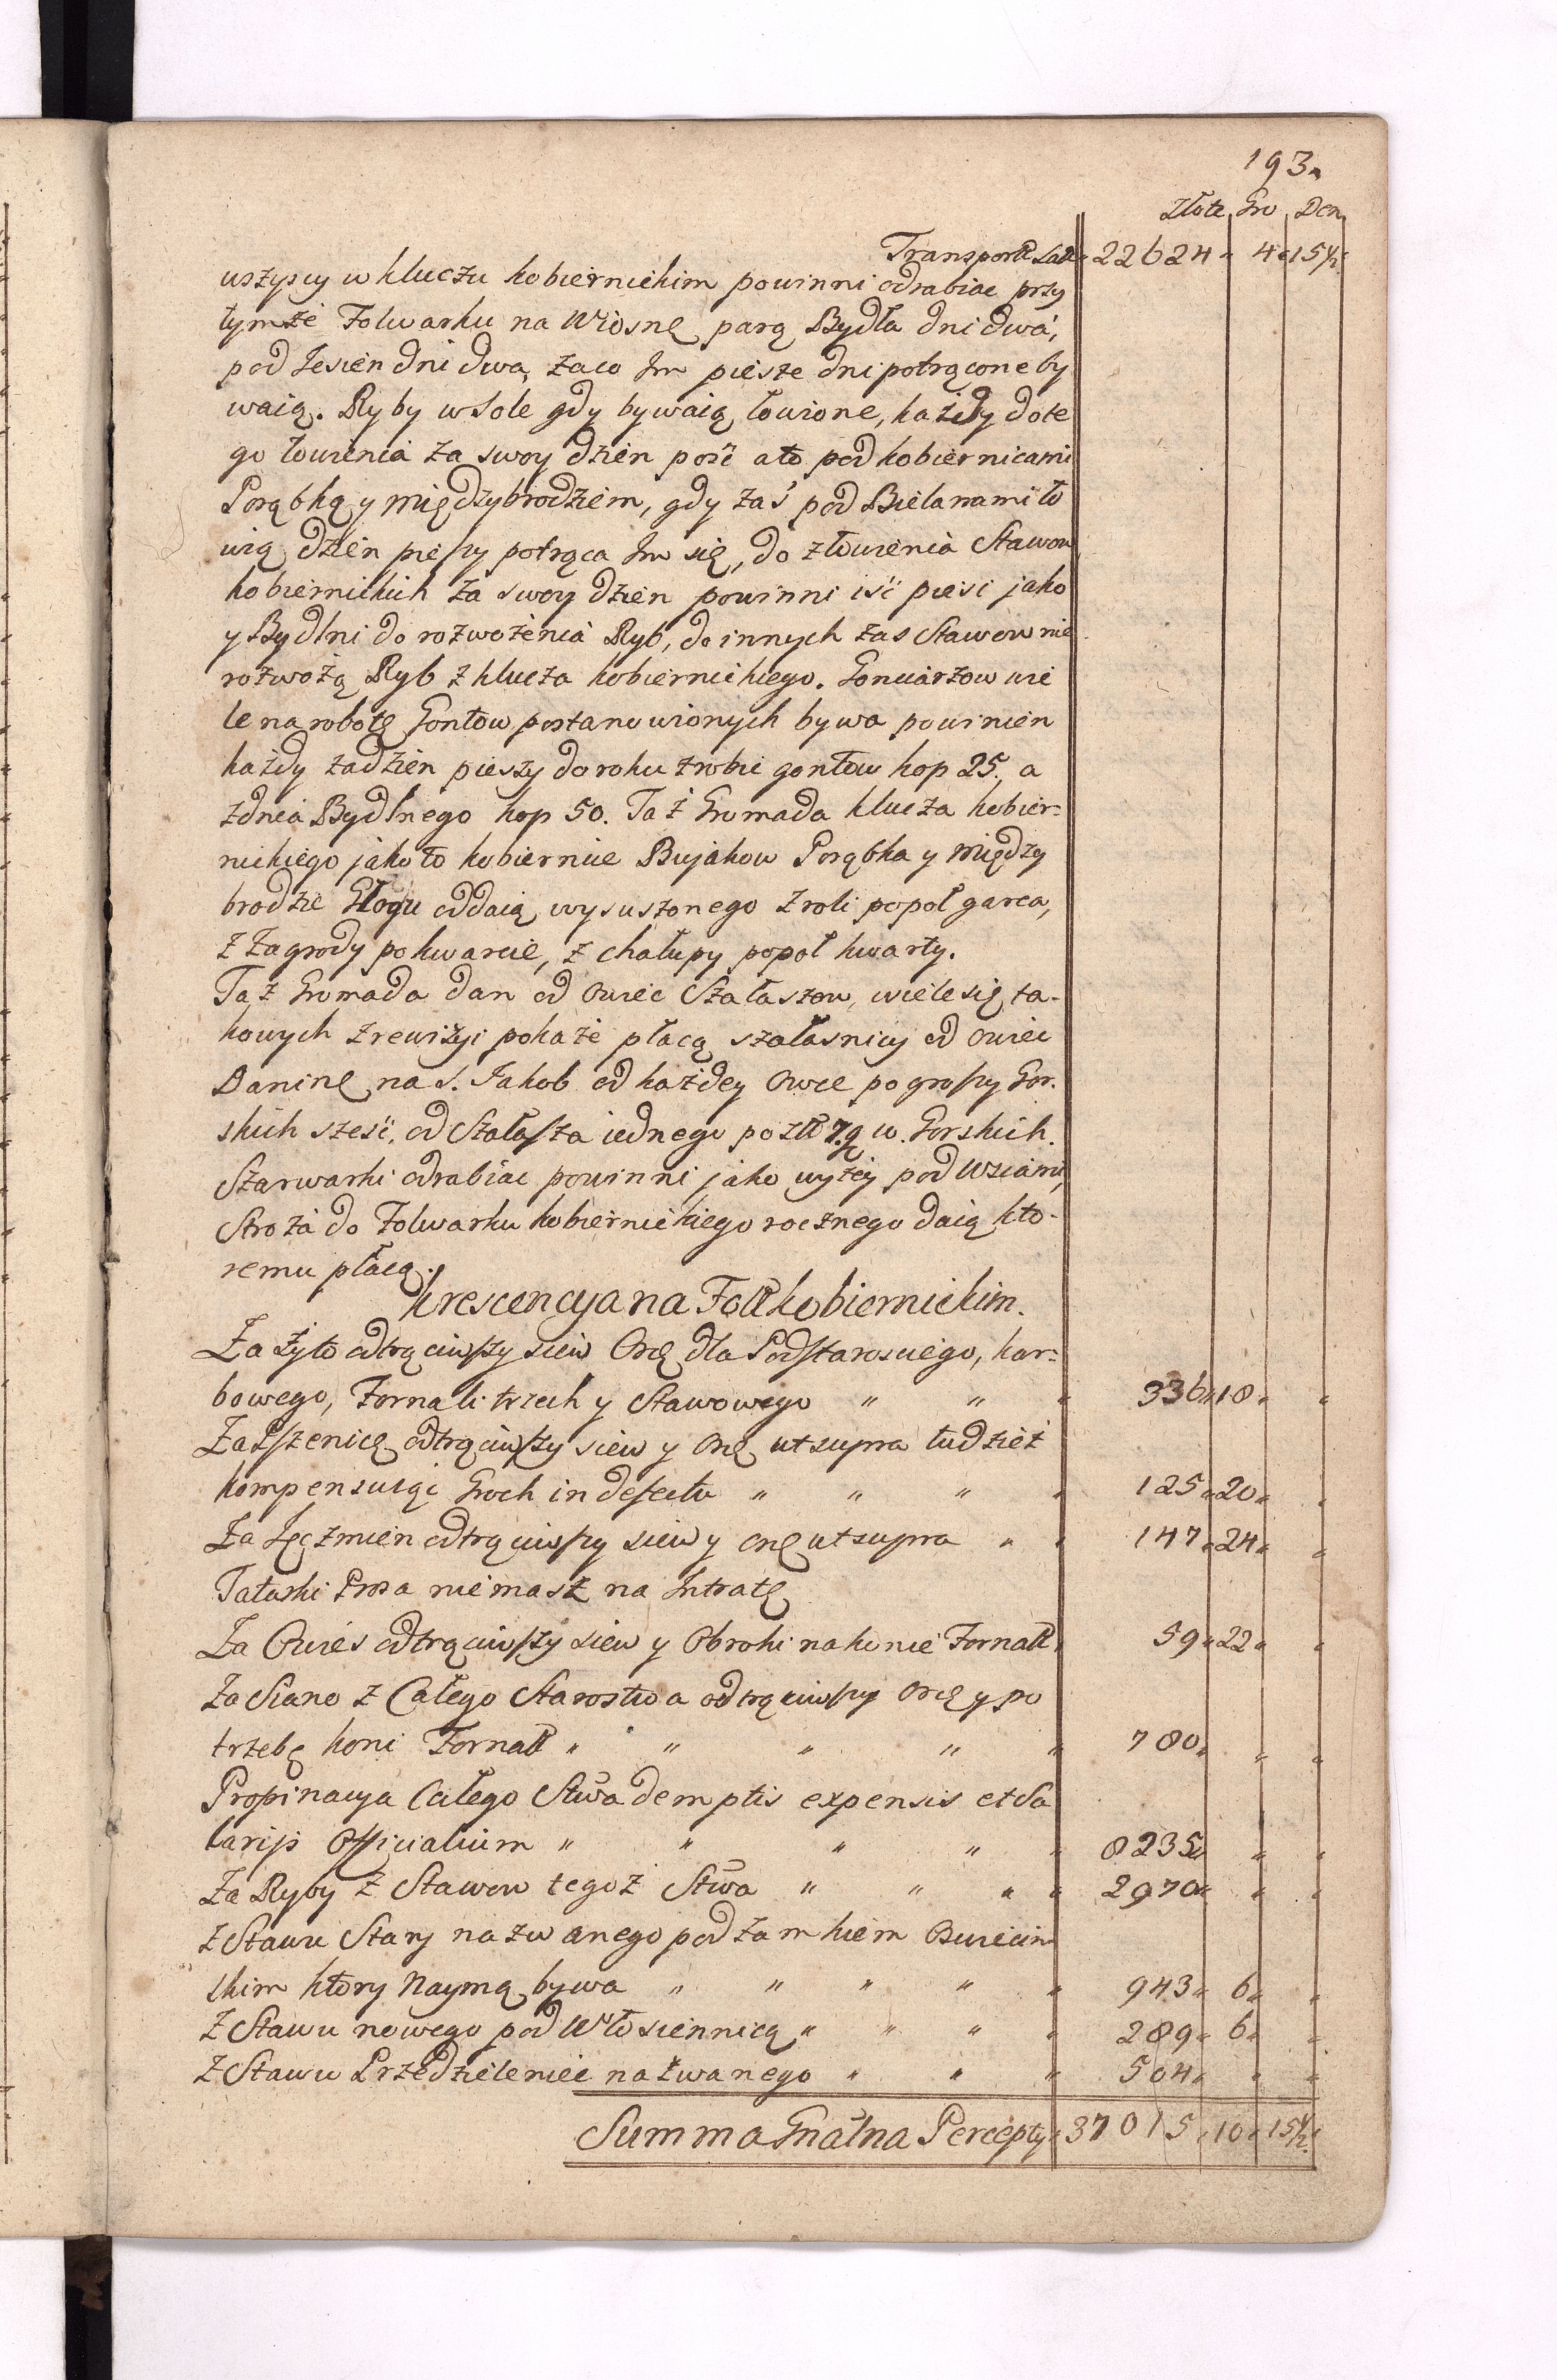 193.
Złote Gro Den
Transport Lat 22624 4 15 1/2
wszyscy w kluczu kobiernickim powinni odrabiac przy
tymże Folwarku na Wiosnę parą Bydła dni dwa,
pod Iesien dni dwa, zaco Im piesze dni potrącone by
waią. Ryby w Sole gdy bywaią łowione, każdy do te
go łowienia za swoy dzien poiść a to pod kobiernicami
Porąbką y Międzybrodziem, gdy zaś pod Bielanami ło
wią dzien pieszy potrąca Im się, do złowienia Stawow
kobiernickich za swoy dzien powinni iść piesi jako
y Bydlni do rozwożenia Ryb, do innych zas Stawow nie
rozwożą Ryb z klucza kobiernickiego. Gonciarzow wie
le na robotę Gontow postanowionych bywa powinien
każdy za dzien pieszy do roku zrobic gontow kop 25. a
z dnia Bydlnego kop 50. Taż Gromada klucza kobier=
nickiego jako to kobiernice Bujakow Porąbka y Między
brodzie Głogu oddaią wysuszonego z roli popoł garca,
z Zagrody po kwarcie, z chałupy popoł kwarty.
Taż Gromada dan od Owiec Szałaszow, wiele się ta-
kowych z rewizyi pokaże płacą szałasnicy od Owiec
Daninę na S. Jakob od każdey Owce po groszy Gor.
skich szesć, od Szałasza iednego po zł 7. g w. Gorskich.
Szarwarki odrabiac powinni jako wyżey pod Wsciami,
Stroża do Folwarku kobiernickiego rocznego daią kto-
remu płacą.
Krescencya na Foll kobiernickim.
Za Żyto odtrąciwszy siew Orę dla Podstarosciego, kar=
bowego, Fornali trzech y Stawowego " " " 336 18
Za Pszenicę odtrąciwszy siew y Orę ut supra tudziez
kompensuiąc Groch in defectu " " " " 125 20
Za Ięczmien odtrąciwszy siew y Orę ut supra " " 147 24
Tatarki Prosa niemasz na Intratę
Za Owies odtrąciwszy siew y Obroki na konie Fornall 59 22
Za Siano z Całego Starostwa odtrąciwszy Orę y po
trzebę koni Fornall " " " " " 780
Propinacya Całego Stwa demptis expensis et Sa
larijs Officialium " " " " " 8235
Za Ryby z Stawow tegoż Stwa " " " " 2970
z Stawu Stary nazwanego pod Zamkiem Oswiecim
skim ktory Naymą bywa " " " " " 943 6
Z Stawu nowego pod Włosiennicą " " " " 289 6
Z Stawu Przedzieleniec nazwanego " " " 504
Summa Gnałna Percepty 37015 10 15 1/2